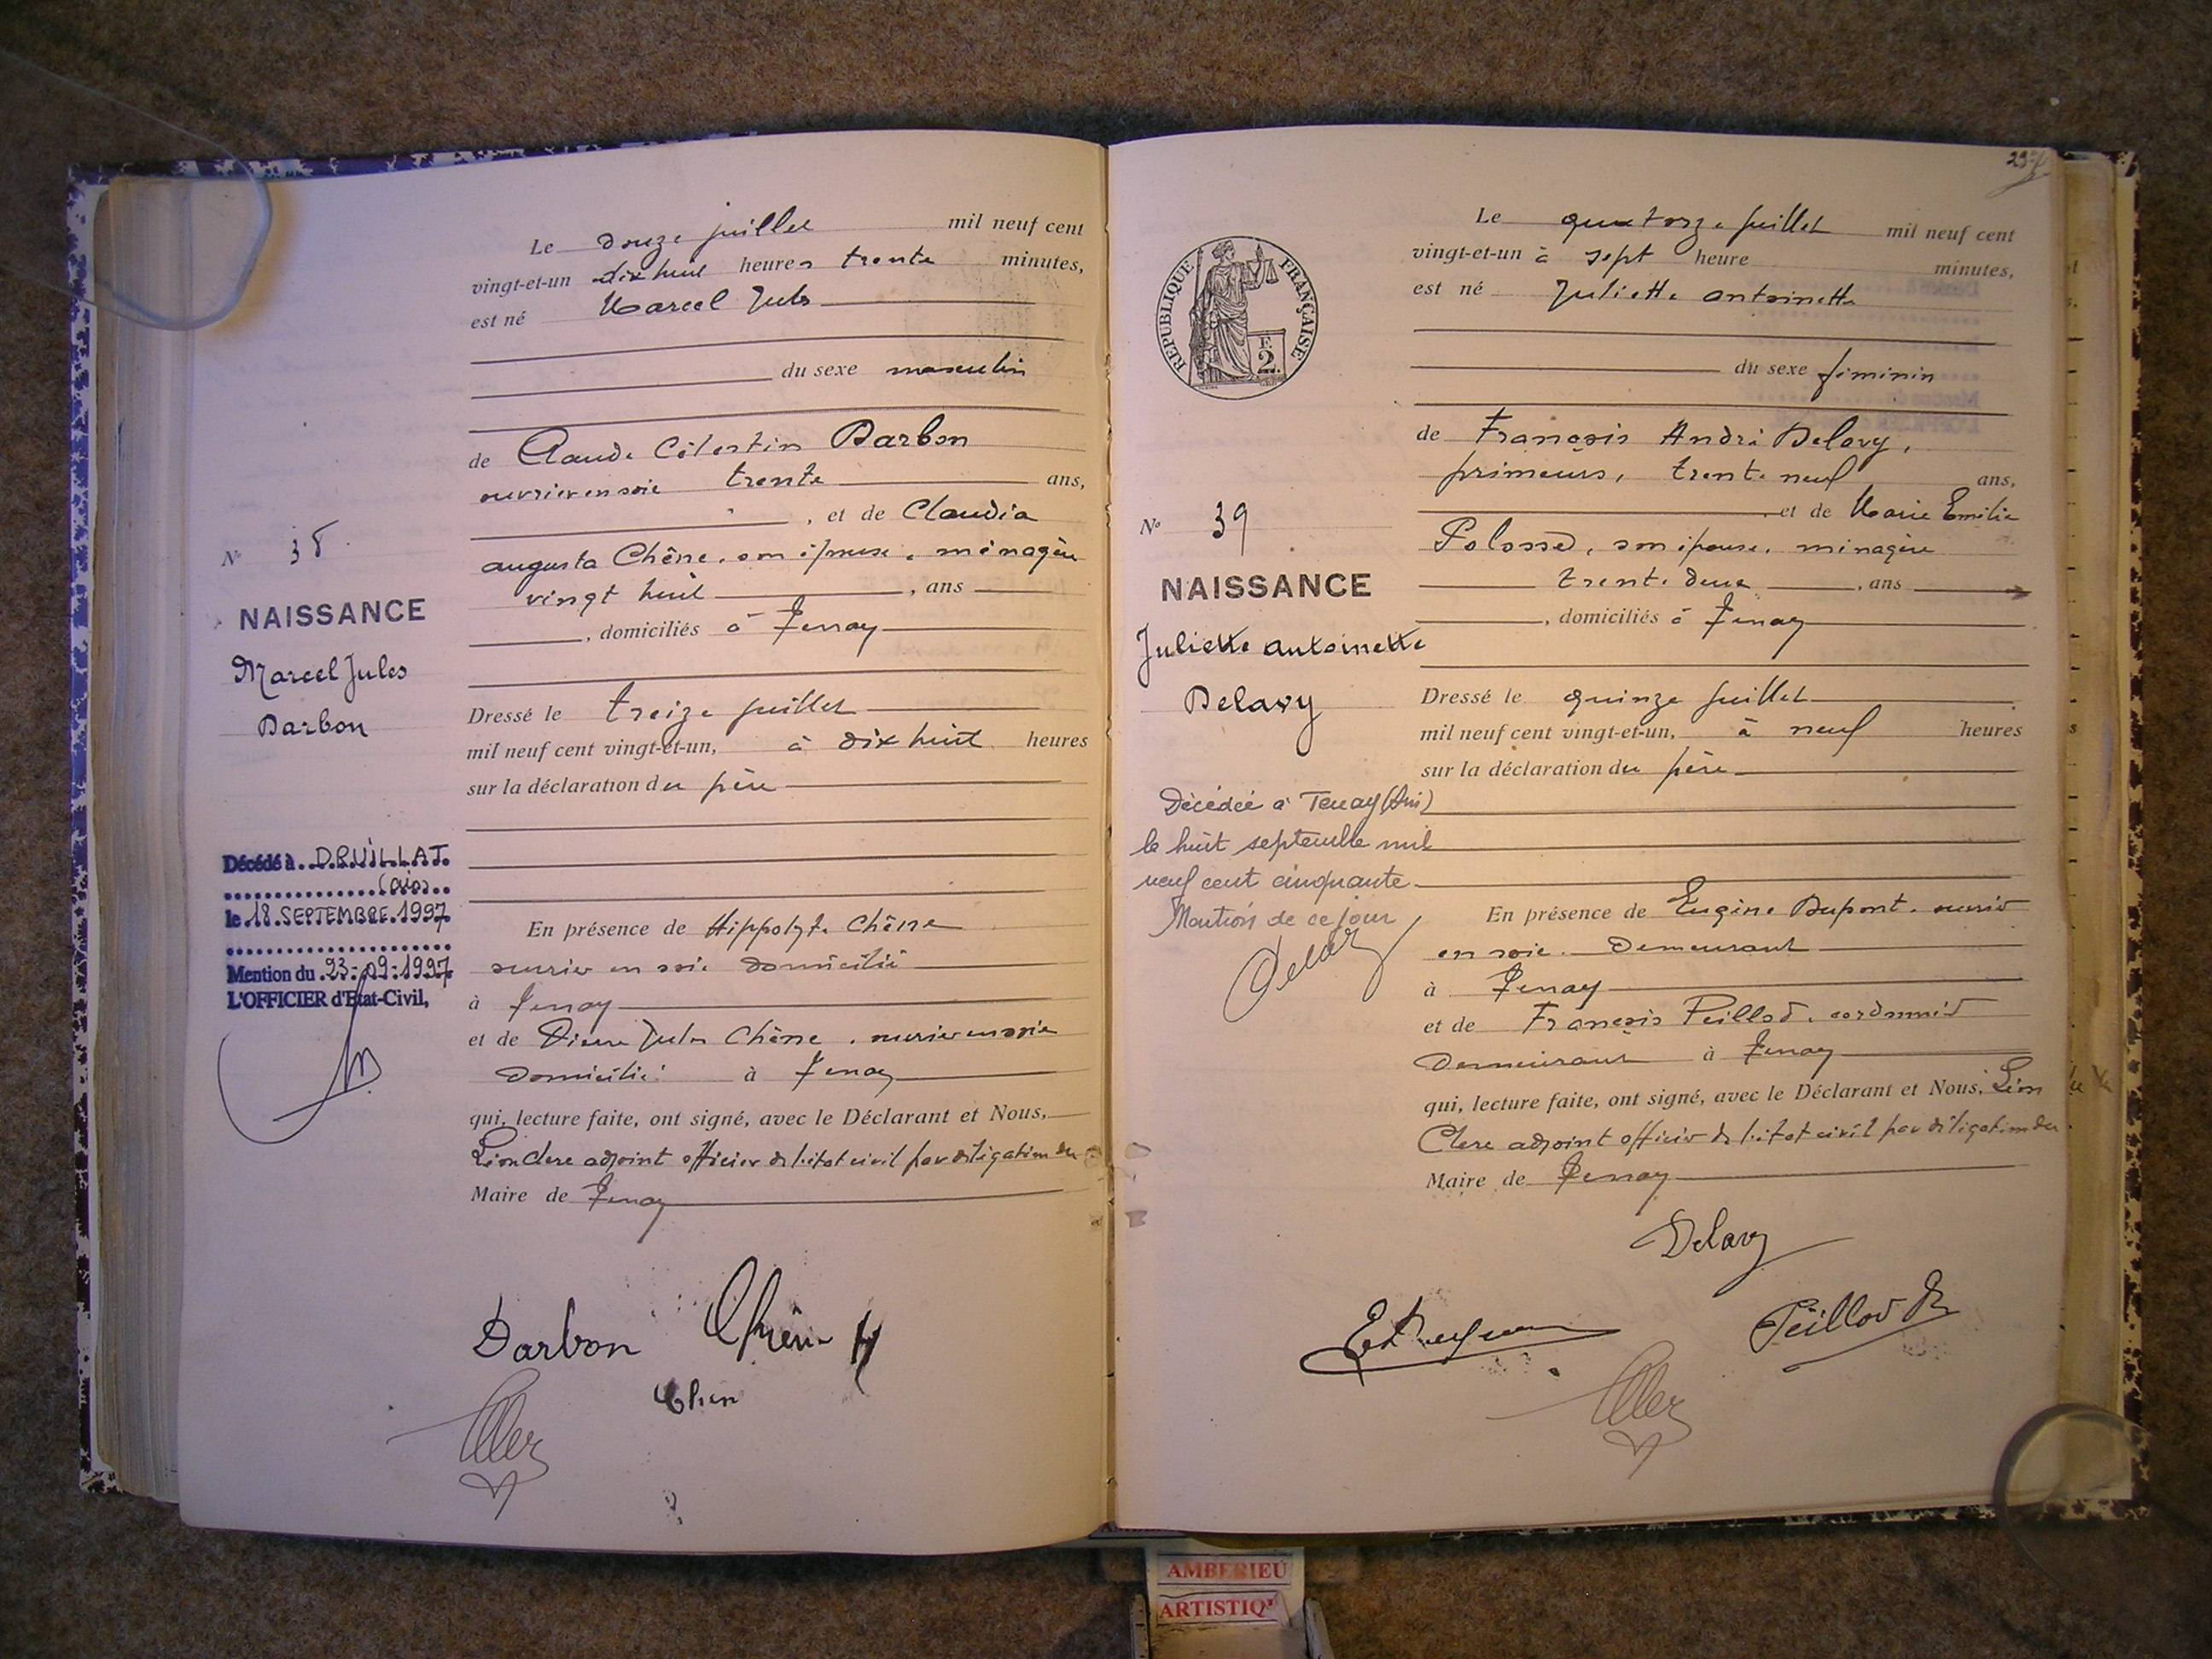 Le douze juillet mil neuf cent
vingt-et-un dix huit heures trente minutes,
est né Marcel Jules
du sexe masculin
de Claude Célestin Darbon
ouvrier en soie trente ans,
, et de Claudia
augusta Chêne, son épouse, ménagère
vingt huit , ans
, domiciliés à Tenay
Dressé le treize juillet
mil neuf cent vingt-et-un, à dix huit heures
sur la déclaration du père
En présence de Hippolyte Chêne
ouvrier en soie domicilié
à Tenay
et de Pierre Jules Chêne, ouvrier en soie
domicilié à Tenay
qui, lecture faite, ont signé, avec le Déclarant et Nous,
Léon Clerc adjoint officier de l'état civil par délégation du
Maire de Tenay
No 38
NAISSANCE
Marcel Jules
Darbon
Décédé à DRUILLAT
(ain)
le 18 SEPTEMBRE 1997
Mention du 23-09-1997
L'OFFICIER d'Etat-Civil,
Darbon Chêne H
Chen
297
Le quatorze juillet mil neuf cent
vingt-et-un à sept heure minutes,
est né Juliette antoinette
du sexe féminin
de François André Delavy,
primeurs, trente neuf ans,
et de Marie Emilie
Polosse, son épouse, ménagère
trente deux , ans
, domiciliés à Tenay
Dressé le quinze juillet
mil neuf cent vingt-et-un, à neuf heures
sur la déclaration du père
En présence de Eugène Dupont, ouvrier
en soie demeurant
à Tenay
et de François Peillod, cordonnier
demeurant à Tenay
qui, lecture faite, ont signé, avec le Déclarant et Nous, Léon
Clerc adjoint officier de l'état civil par délégation du
Maire de Tenay
RÉPUBLIQUE FRANÇAISE
F.
2.
No 39
NAISSANCE
Juliette antoinette
Delavy
Décédée à Tenay (Ain)
le huit septembre mil
neuf cent cinquante
Mention de ce jour
Delavy
Peillod
AMBERIEU
ARTISTIQ